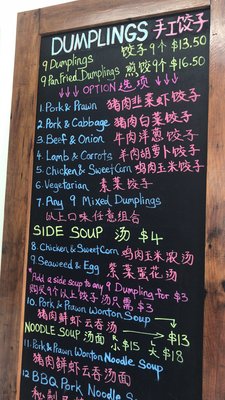 DUMPLINGS 手工饺子
9 Dumplings 饺子9个 $13.50
9 Pan Fried Dumplings 煎饺9个 $16.50
↓↓↓OPTION选项↓↓↓
1. Pork & Prawn 猪肉韭菜虾饺子
2. Pork & Cabbage 猪肉白菜饺子
3. Beef & Onion 牛肉洋葱饺子
4. Lamb & Carrots 羊肉胡萝卜饺子
5. Chicken & Sweet Corn 鸡肉玉米饺子
6. Vegetarian 素菜饺子
7. Any 9 Mixed Dumplings
以上口味任意组合
SIDE SOUP 汤 $4
8. Chicken & Sweet Corn 鸡肉玉米浓汤
9 Seaweed & Egg 紫菜蛋花汤
*Add a side soup to any 9 Dumpling for $3
购买9个以上饺子 汤只需$3
10. Pork & Prawn Wonton Soup
猪肉鲜虾云吞汤 → $13
NOODLE SOUP 汤面 小$15 大$18
11. Pork & Prawn Wonton Noodle Soup
猪肉鲜虾云吞汤面
12 BBQ Pork Noodle